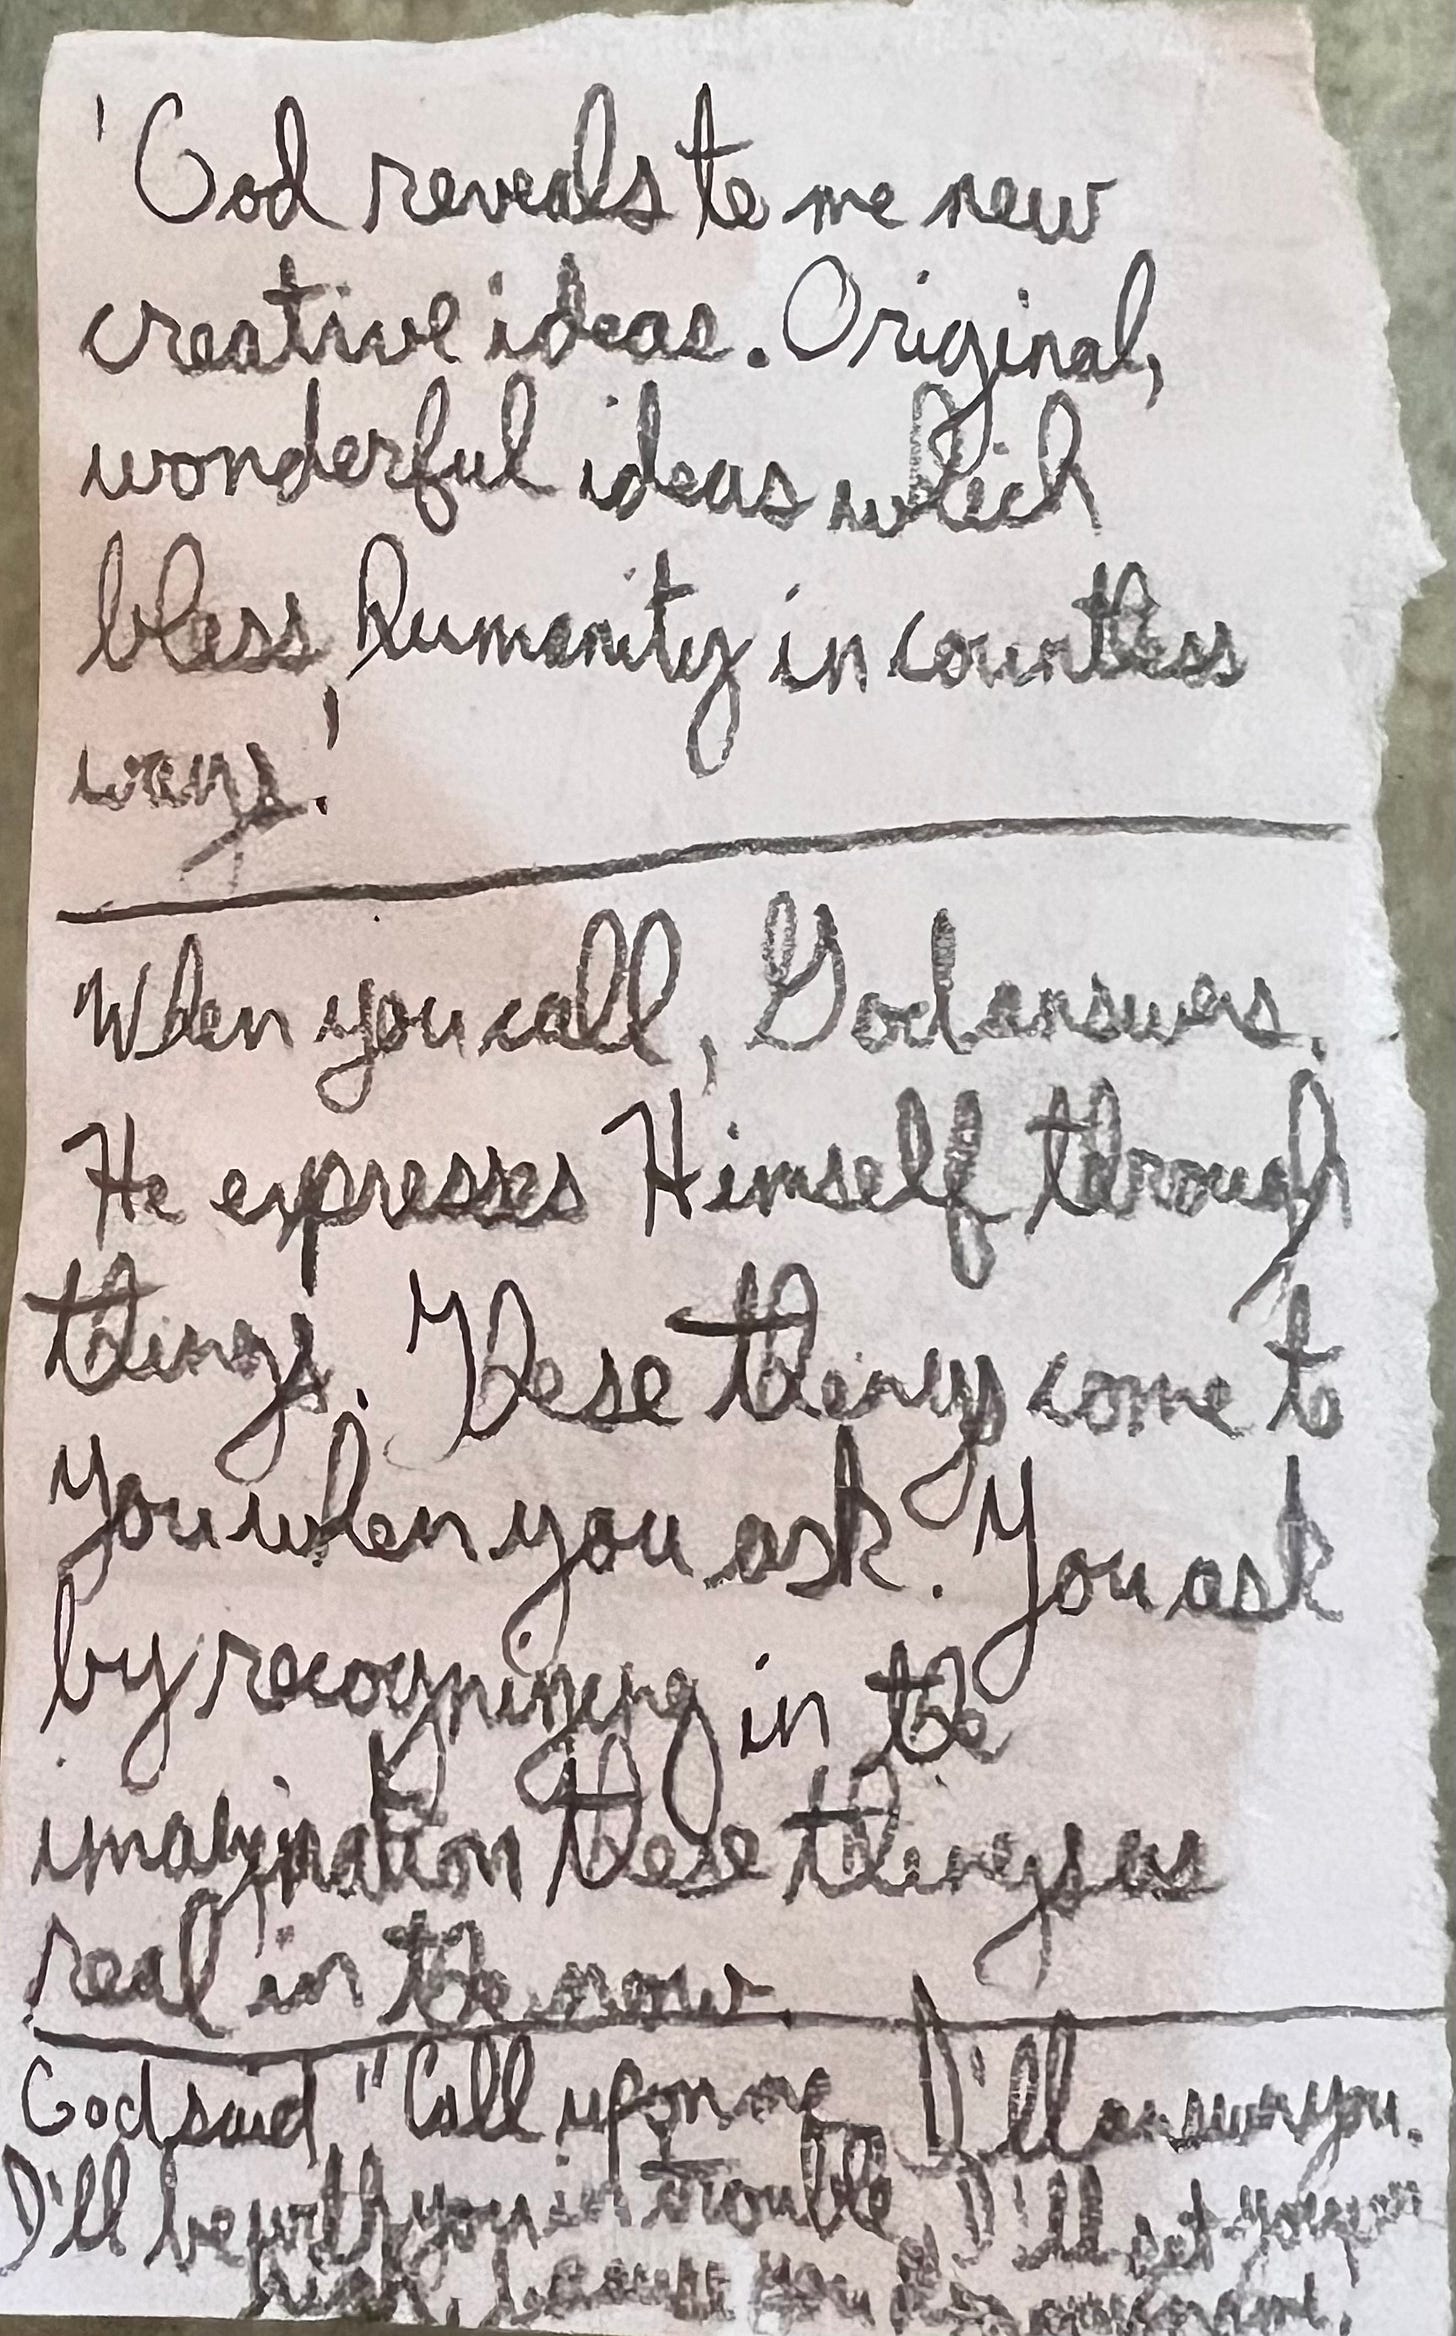 'God reveals to me new
creative ideas. Original,
wonderful ideas which
bless humanity in countless
ways.'
When you call, God answers.
He expresses Himself through
things. These things come to
you when you ask. You ask
by recognizing in the
imagination these things as
real in the now.
God said "Call upon me I'll answer you.
I'll be with you in trouble I'll set you on
high, because you